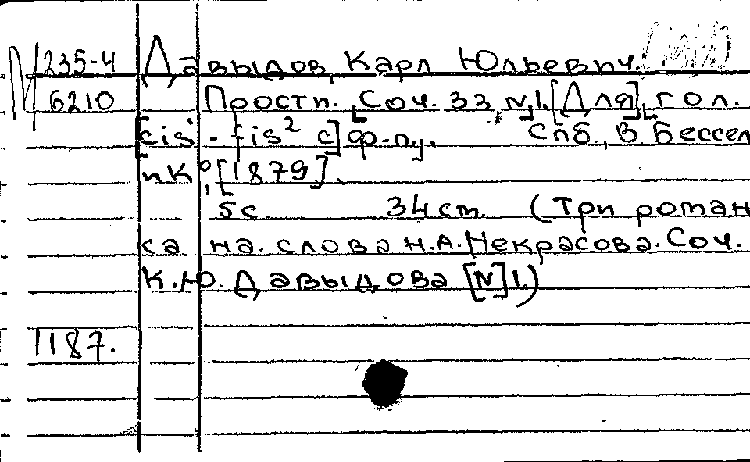 М 235-4 Давыдов, Карл Юльевич.
6210 Прости. Соч. 33 N 1. [Для] гол.
[cis¹ - fis² с] ф-п. Спб., В. Бессел
и К°, [1879].
5 с. 34 ст. (Три роман
са на слова Н.А. Некрасова. Соч.
К.Ю. Давыдова [N] 1.)
1187.